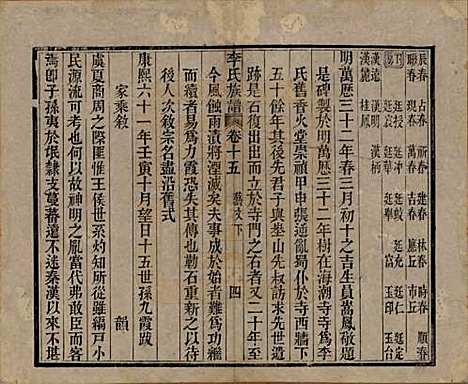 辰春 古春 祈春 建春 林春 時春 順春
聯春 現春 萬春 吉春 應丘 市丘
廷授 廷冲 廷蛟 廷仁 廷定
廷袞 廷華 廷富 玉印 玉台
漢遠 漢明 漢柄
漢麗 桂鳳
明萬歷三十二年春三月初十之吉生員萬鳳敬題
是碑製於明萬歷三十二年樹在海潮寺寺爲李
氏舊香火堂崇禎甲申張逋亂蜀仆於寺西牆下
五十餘年其後先君子與坐山先叔訪求先世遺
跡是石復出而立於寺門之右者又二十年至
今風蝕雨潰將湮滅矣夫事成於始者難爲功傳
於續者易爲力霞竊幸其傳也勒石重新之以待
後人次敘宗名盡沿舊式
康熙六十一年壬寅十月望日十五世孫九霞跋
家乘敘 韻
虞夏商周之際匪惟王侯世系灼知所出雖編戶小
民源流可考也何以故神明之胤當代弗敢臣而倉
焉卽子孫夷於氓隸支蔓蕃遠不迷秦漢以來不堪
李氏族譜 卷十五 藝文下 四